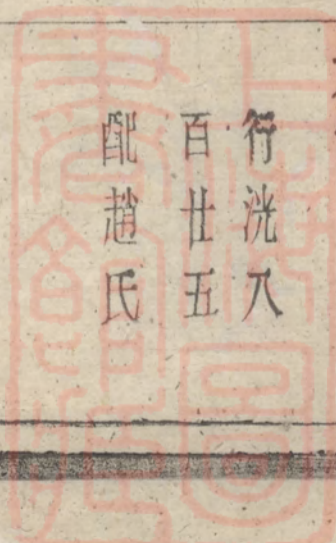 行洸八
百廿五
配趙氏